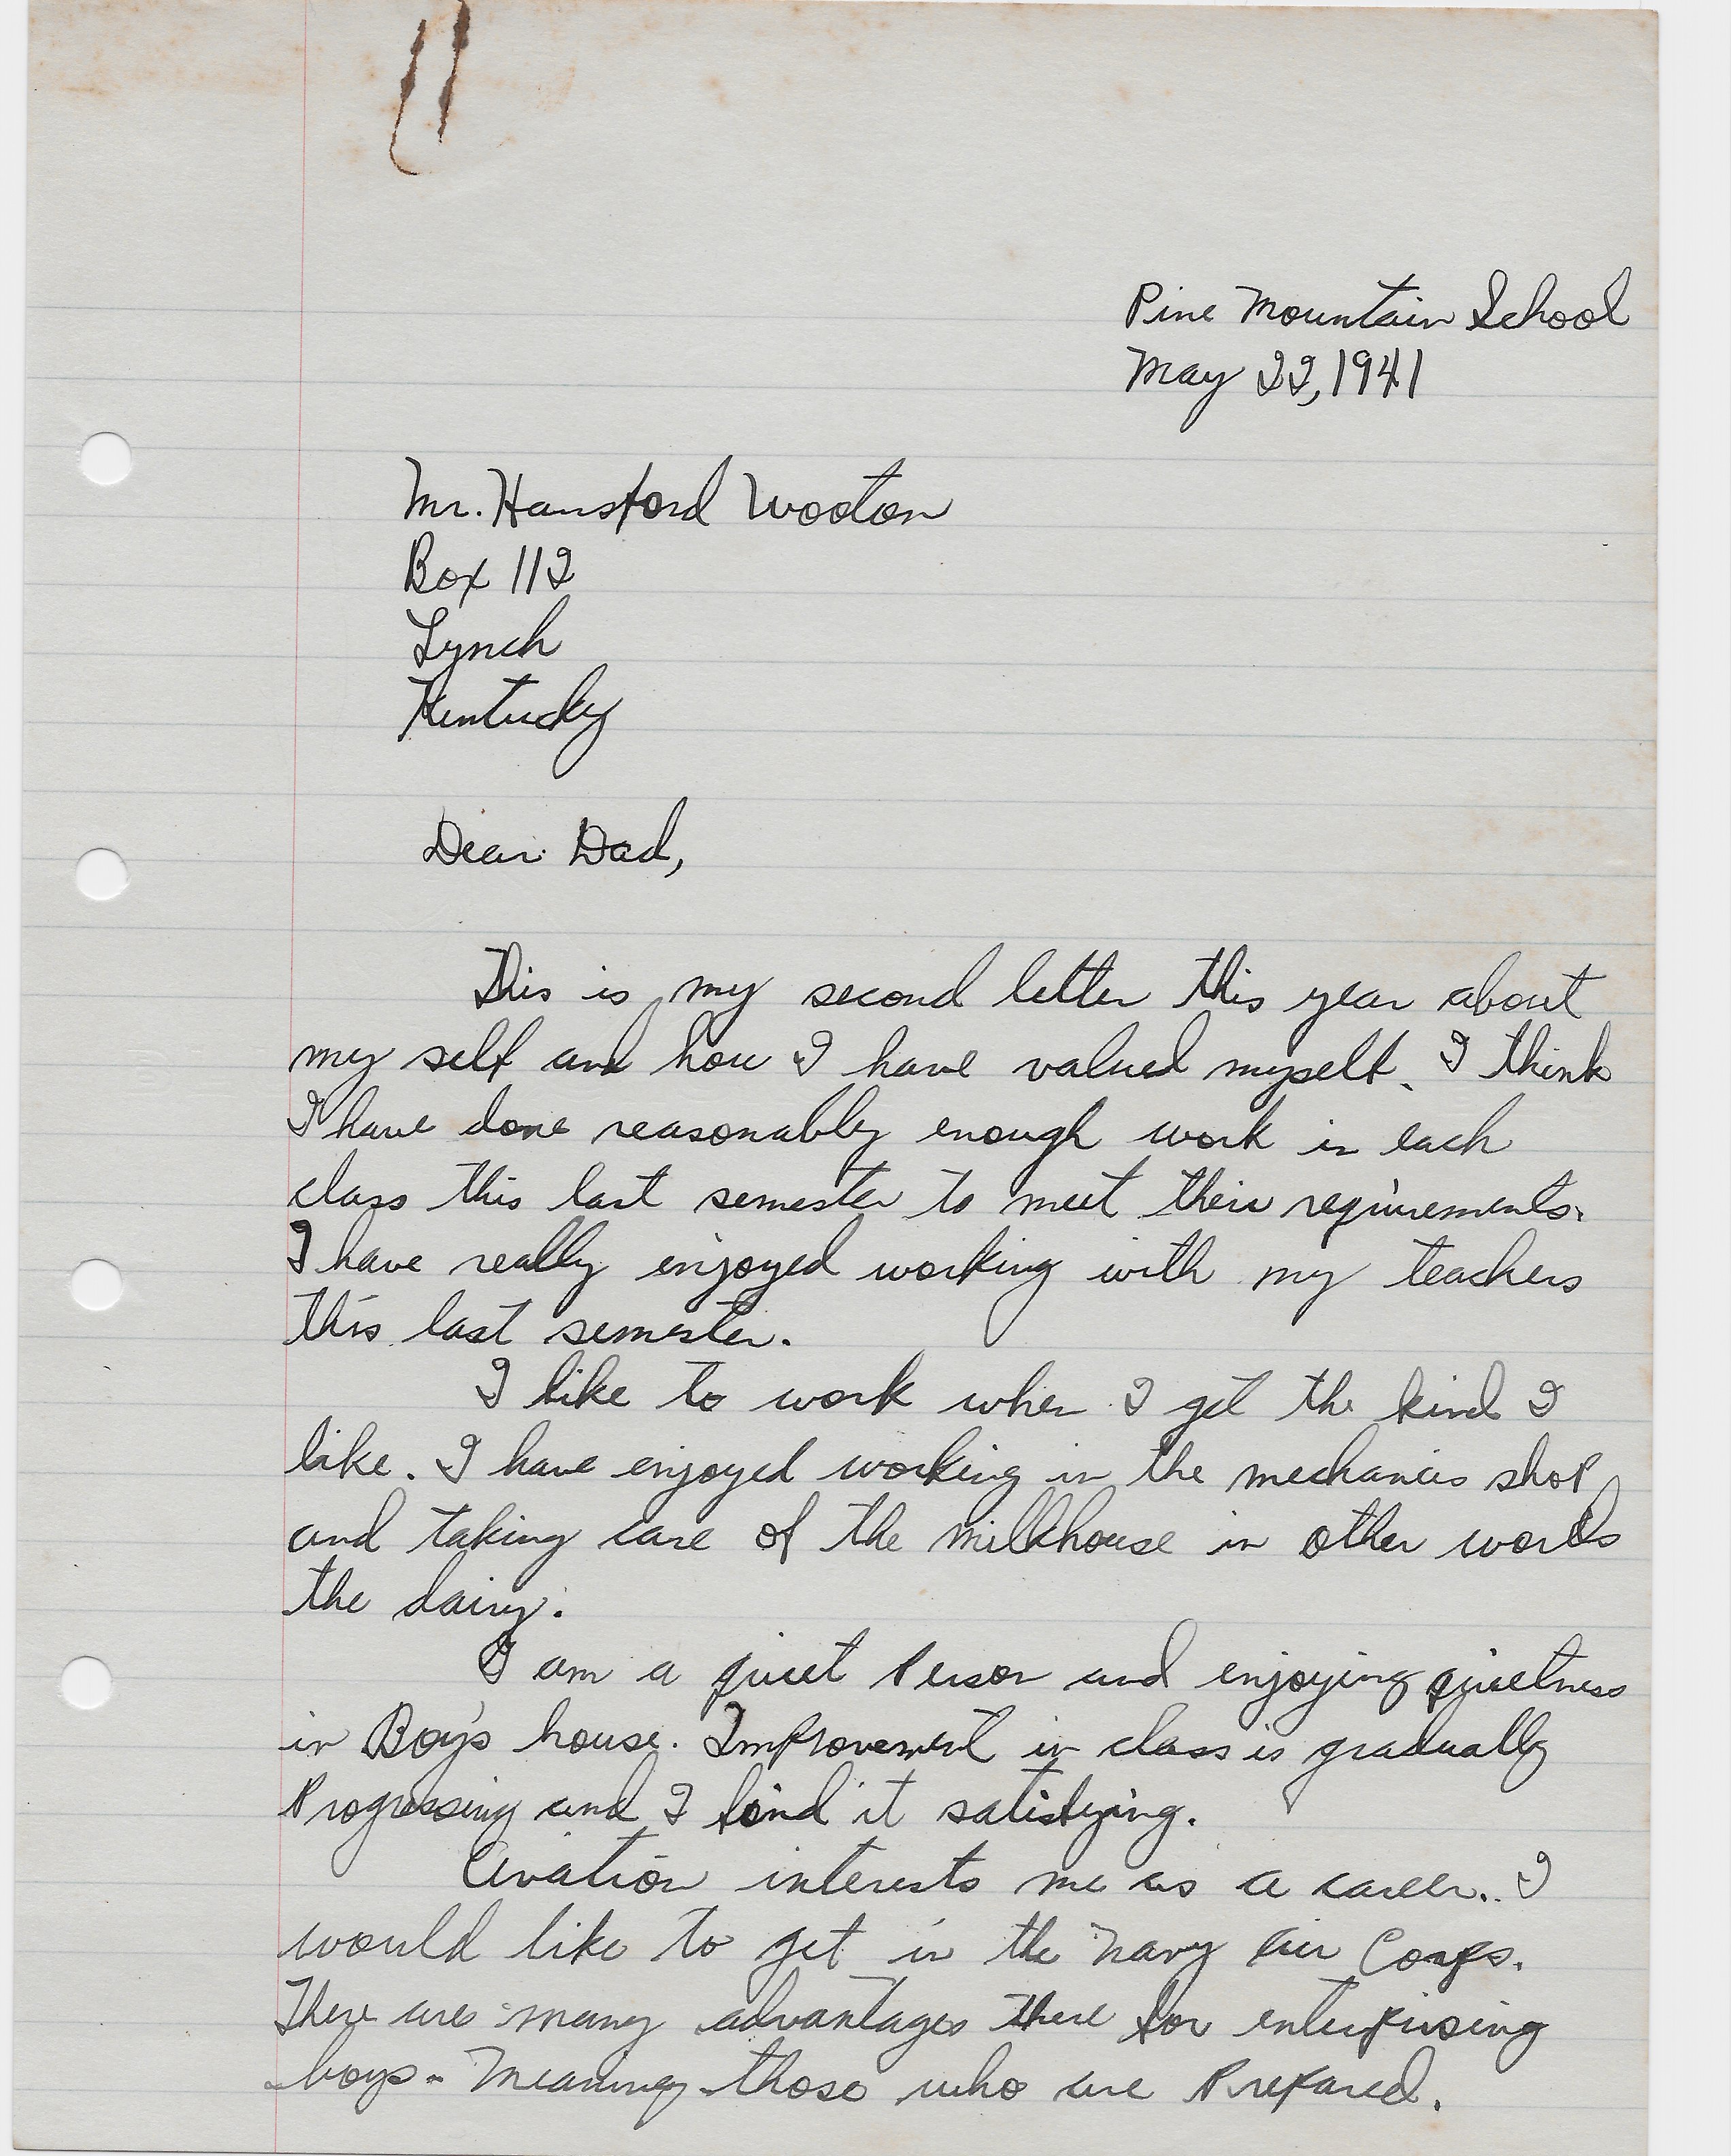 Pine Mountain School
May 22, 1941
Mr. Hansford Wooton
Box 112
Lynch
Kentucky
Dear Dad,
This is my second letter this year about
my self and how I have valued myself. I think
I have done reasonably enough work in each
class this last semester to meet their requirements.
I have really enjoyed working with my teachers
this last semester.
I like to work when I get the kind I
like. I have enjoyed working in the mechanics shop
and taking care of the milkhouse in other words
the dairy.
I am a quiet Person and enjoying quietness
in Boy's house. Improvement in class is gradually
Progressing and I find it satisfying.
Aviation interests me as a career. I
would like to get in the Navy Air Corps.
There are many advantages there for enterprising
boys - Meaning those who are Prepared.